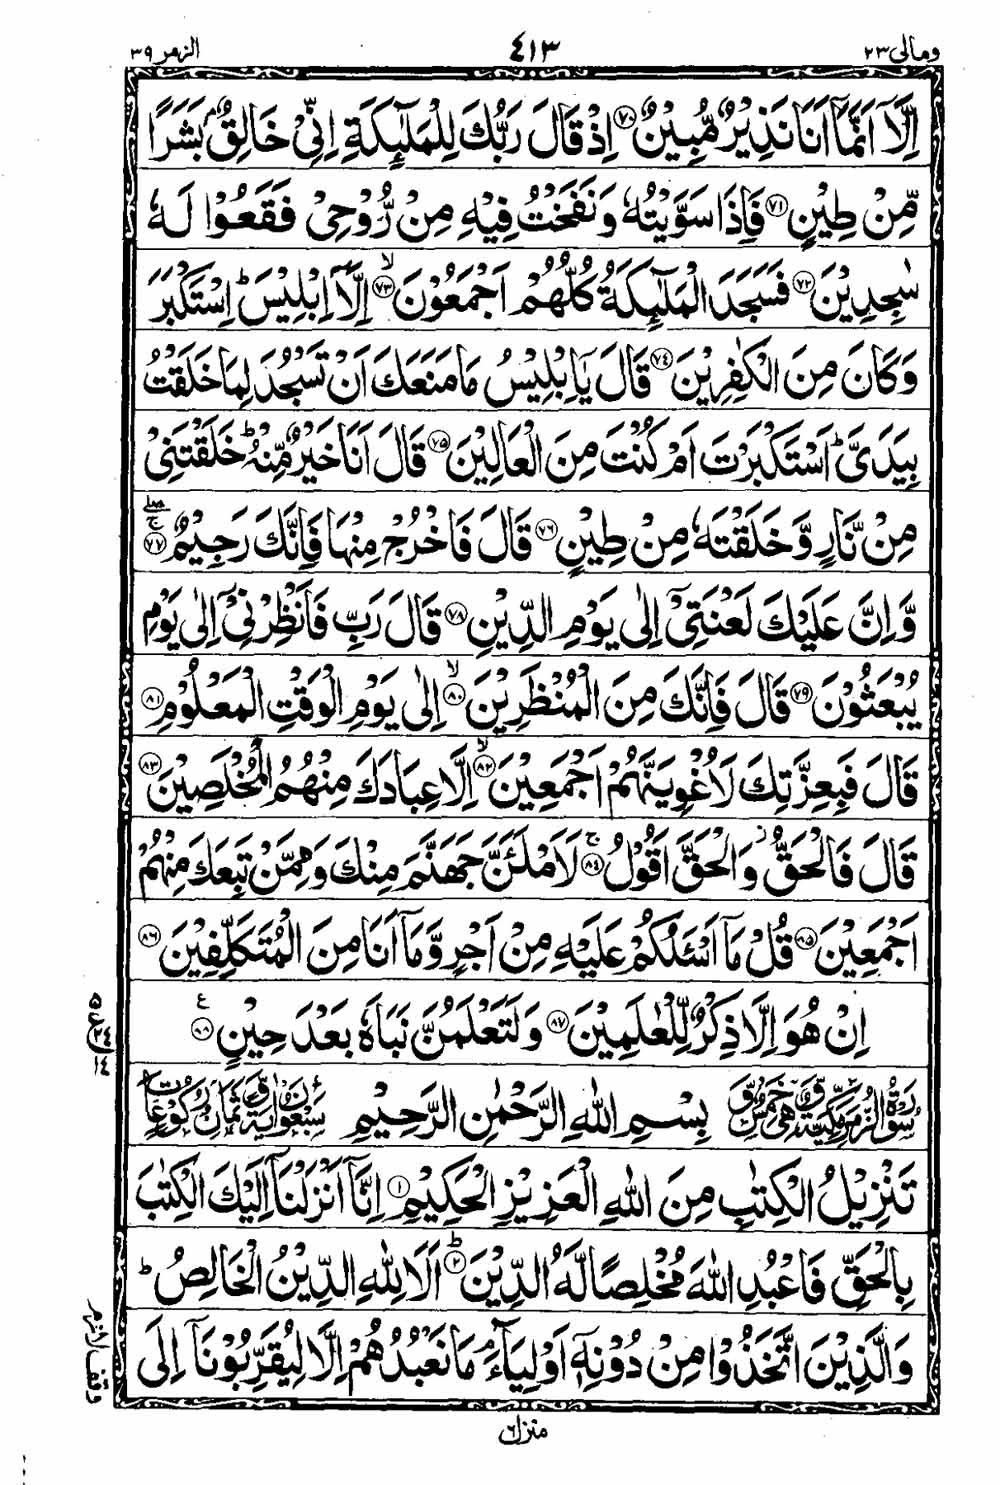 ومالی ٢٣
٤١٣
الزمر ٣٩
اِلَّاۤ اَنَّمَاۤ اَنَا نَذِيْرٌ مُّبِيْنٌ ﴿٧٠﴾ اِذْ قَالَ رَبُّكَ لِلْمَلٰٓئِكَةِ اِنِّىْ خَالِقٌۢ بَشَرًا
مِّنْ طِيْنٍ ﴿٧١﴾ فَاِذَا سَوَّيْتُهٗ وَنَفَخْتُ فِيْهِ مِنْ رُّوْحِىْ فَقَعُوْا لَهٗ
سٰجِدِيْنَ ﴿٧٢﴾ فَسَجَدَ الْمَلٰٓئِكَةُ كُلُّهُمْ اَجْمَعُوْنَ ﴿٧٣﴾ۙ اِلَّاۤ اِبْلِيْسَؕ اِسْتَكْبَرَ
وَكَانَ مِنَ الْكٰفِرِيْنَ ﴿٧٤﴾ قَالَ يٰۤاِبْلِيْسُ مَا مَنَعَكَ اَنْ تَسْجُدَ لِمَا خَلَقْتُ
بِيَدَىَّؕ اَسْتَكْبَرْتَ اَمْ كُنْتَ مِنَ الْعَالِيْنَ ﴿٧٥﴾ قَالَ اَنَا خَيْرٌ مِّنْهُؕ خَلَقْتَنِىْ
مِنْ نَّارٍ وَّخَلَقْتَهٗ مِنْ طِيْنٍ ﴿٧٦﴾ قَالَ فَاخْرُجْ مِنْهَا فَاِنَّكَ رَجِيْمٌ ﴿٧٧﴾ۚۖ
وَّاِنَّ عَلَيْكَ لَعْنَتِىْۤ اِلٰى يَوْمِ الدِّيْنِ ﴿٧٨﴾ قَالَ رَبِّ فَاَنْظِرْنِىْۤ اِلٰى يَوْمِ
يُبْعَثُوْنَ ﴿٧٩﴾ قَالَ فَاِنَّكَ مِنَ الْمُنْظَرِيْنَ ﴿٨٠﴾ۙ اِلٰى يَوْمِ الْوَقْتِ الْمَعْلُوْمِ ﴿٨١﴾
قَالَ فَبِعِزَّتِكَ لَاُغْوِيَنَّهُمْ اَجْمَعِيْنَ ﴿٨٢﴾ۙ اِلَّا عِبَادَكَ مِنْهُمُ الْمُخْلَصِيْنَ ﴿٨٣﴾
قَالَ فَالْحَقُّ وَالْحَقَّ اَقُوْلُ ﴿٨٤﴾ۚ لَاَمْلَئَنَّ جَهَنَّمَ مِنْكَ وَمِمَّنْ تَبِعَكَ مِنْهُمْ
اَجْمَعِيْنَ ﴿٨٥﴾ قُلْ مَاۤ اَسْئَلُكُمْ عَلَيْهِ مِنْ اَجْرٍ وَّمَاۤ اَنَا مِنَ الْمُتَكَلِّفِيْنَ ﴿٨٦﴾
اِنْ هُوَ اِلَّا ذِكْرٌ لِّلْعٰلَمِيْنَ ﴿٨٧﴾ وَلَتَعْلَمُنَّ نَبَاَهٗ بَعْدَ حِيْنٍ ﴿٨٨﴾ ع
سُوْرَةُ الزُّمَرِ مَكِّيَّةٌ وَّهِىَ خَمْسٌ وَّ بِسْمِ اللهِ الرَّحْمٰنِ الرَّحِيْمِ سَبْعُوْنَ اٰيَةً وَّثَمَانُ رُكُوْعَاتٍ
تَنْزِيْلُ الْكِتٰبِ مِنَ اللهِ الْعَزِيْزِ الْحَكِيْمِ ﴿١﴾ اِنَّاۤ اَنْزَلْنَاۤ اِلَيْكَ الْكِتٰبَ
بِالْحَقِّ فَاعْبُدِ اللهَ مُخْلِصًا لَّهُ الدِّيْنَ ﴿٢﴾ؕ اَلَا لِلّٰهِ الدِّيْنُ الْخَالِصُؕ
وَالَّذِيْنَ اتَّخَذُوْا مِنْ دُوْنِهٖۤ اَوْلِيَآءَۘ مَا نَعْبُدُهُمْ اِلَّا لِيُقَرِّبُوْنَاۤ اِلَى
وقف لازم
منزل ٦